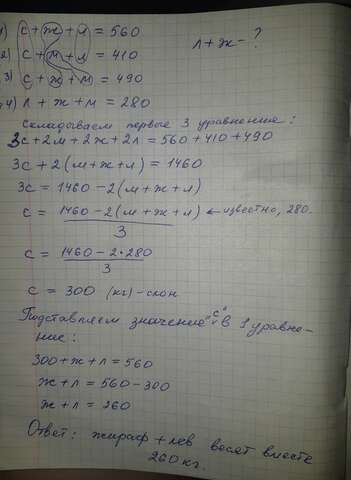 1) с + ж + л = 560
л + ж - ?
2) с + м + л = 410
3) с + ж + м = 490
4) л + ж + м = 280
Складываем первые 3 уравнения:
3с + 2м + 2ж + 2л = 560 + 410 + 490
3с + 2(м + ж + л) = 1460
3с = 1460 - 2(м + ж + л)
с = 1460 - 2(м + ж + л) ← известно, 280.
3
с = 1460 - 2·280
3
с = 300 (кг) - слон
Подставляем значение "с" в 1 уравне-
ние:
300 + ж + л = 560
ж + л = 560 - 300
ж + л = 260
Ответ: жираф + лев весят вместе
260 кг.